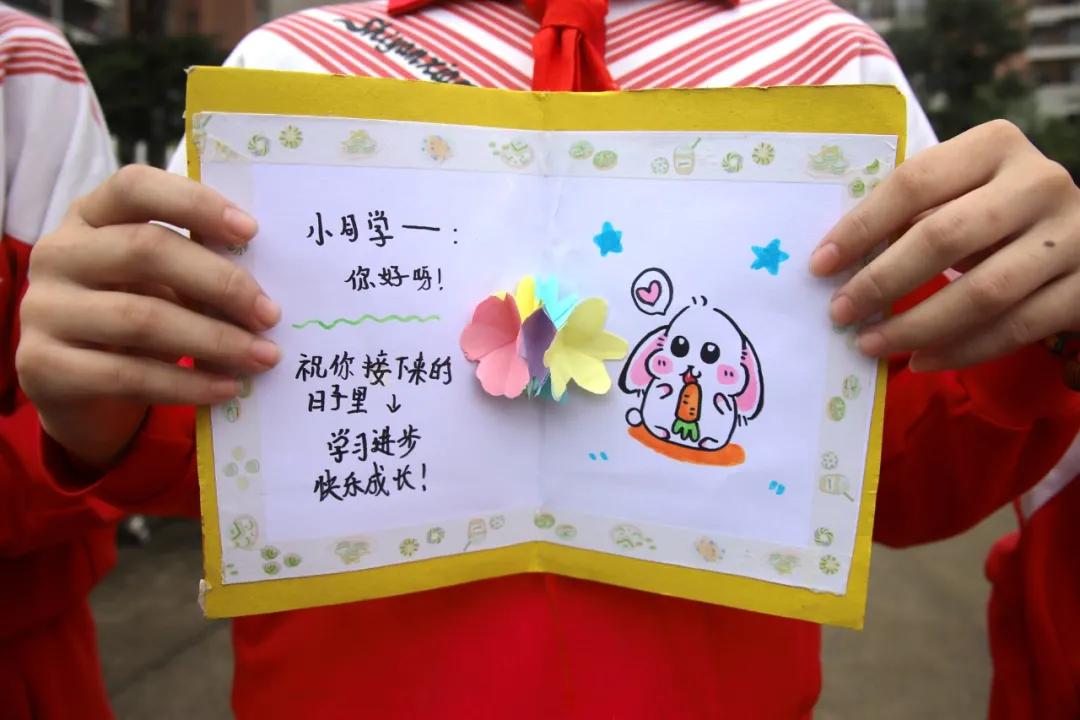 Shiyanxiao
小同学一：
你好呀！
祝你接下来的
日子里↓
学习进步
快乐成长！